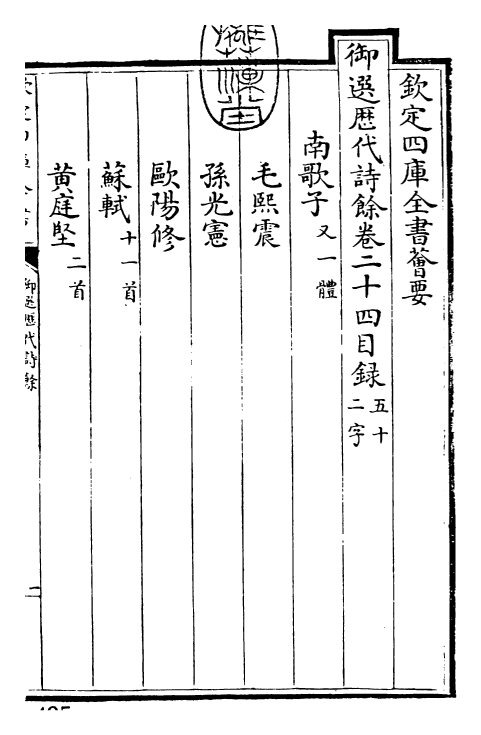 欽定四庫全書薈要
御選歷代詩餘卷二十四目錄 五十二字
南歌子 又一體
毛熙震
孫光憲
歐陽修
蘇軾 十一首
黃庭堅 二首
御選歷代詩餘